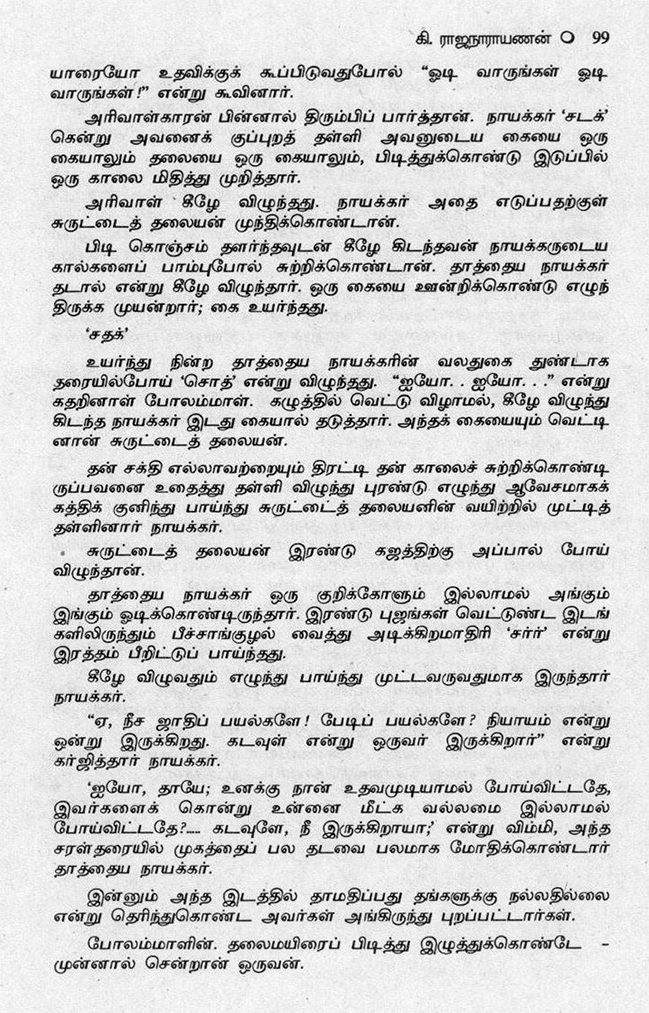 கி. ராஜநாராயணன் ○ 99
யாரையோ உதவிக்குக் கூப்பிடுவதுபோல் “ஓடி வாருங்கள் ஓடி
வாருங்கள்!” என்று கூவினார்.
அரிவாள்காரன் பின்னால் திரும்பிப் பார்த்தான். நாயக்கர் ‘சடக்’
கென்று அவனைக் குப்புறத் தள்ளி அவனுடைய கையை ஒரு
கையாலும் தலையை ஒரு கையாலும், பிடித்துக்கொண்டு இடுப்பில்
ஒரு காலை மிதித்து முறித்தார்.
அரிவாள் கீழே விழுந்தது. நாயக்கர் அதை எடுப்பதற்குள்
சுருட்டைத் தலையன் முந்திக்கொண்டான்.
பிடி கொஞ்சம் தளர்ந்தவுடன் கீழே கிடந்தவன் நாயக்கருடைய
கால்களைப் பாம்புபோல் சுற்றிக்கொண்டான். தாத்தைய நாயக்கர்
தடால் என்று கீழே விழுந்தார். ஒரு கையை ஊன்றிக்கொண்டு எழுந்
திருக்க முயன்றார்; கை உயர்ந்தது.
‘சதக்’
உயர்ந்து நின்ற தாத்தைய நாயக்கரின் வலதுகை துண்டாக
தரையில்போய் ‘சொத்’ என்று விழுந்தது. “ஐயோ. . ஐயோ. . .” என்று
கதறினாள் போலம்மாள். கழுத்தில் வெட்டு விழாமல், கீழே விழுந்து
கிடந்த நாயக்கர் இடது கையால் தடுத்தார். அந்தக் கையையும் வெட்டி
னான் சுருட்டைத் தலையன்.
தன் சக்தி எல்லாவற்றையும் திரட்டி தன் காலைச் சுற்றிக்கொண்டி
ருப்பவனை உதைத்து தள்ளி விழுந்து புரண்டு எழுந்து ஆவேசமாகக்
கத்திக் குனிந்து பாய்ந்து சுருட்டைத் தலையனின் வயிற்றில் முட்டித்
தள்ளினார் நாயக்கர்.
சுருட்டைத் தலையன் இரண்டு கஜத்திற்கு அப்பால் போய்
விழுந்தான்.
தாத்தைய நாயக்கர் ஒரு குறிக்கோளும் இல்லாமல் அங்கும்
இங்கும் ஓடிக்கொண்டிருந்தார். இரண்டு புஜங்கள் வெட்டுண்ட இடங்
களிலிருந்தும் பீச்சாங்குழல் வைத்து அடிக்கிறமாதிரி ‘சர்ர்’ என்று
இரத்தம் பீறிட்டுப் பாய்ந்தது.
கீழே விழுவதும் எழுந்து பாய்ந்து முட்டவருவதுமாக இருந்தார்
நாயக்கர்.
“ஏ, நீச ஜாதிப் பயல்களே! பேடிப் பயல்களே? நியாயம் என்று
ஒன்று இருக்கிறது. கடவுள் என்று ஒருவர் இருக்கிறார்” என்று
கர்ஜித்தார் நாயக்கர்.
‘ஐயோ, தாயே; உனக்கு நான் உதவமுடியாமல் போய்விட்டதே,
இவர்களைக் கொன்று உன்னை மீட்க வல்லமை இல்லாமல்
போய்விட்டதே?..... கடவுளே, நீ இருக்கிறாயா;’ என்று விம்மி, அந்த
சரள்தரையில் முகத்தைப் பல தடவை பலமாக மோதிக்கொண்டார்
தாத்தைய நாயக்கர்.
இன்னும் அந்த இடத்தில் தாமதிப்பது தங்களுக்கு நல்லதில்லை
என்று தெரிந்துகொண்ட அவர்கள் அங்கிருந்து புறப்பட்டார்கள்.
போலம்மாளின். தலைமயிரைப் பிடித்து இழுத்துக்கொண்டே –
முன்னால் சென்றான் ஒருவன்.